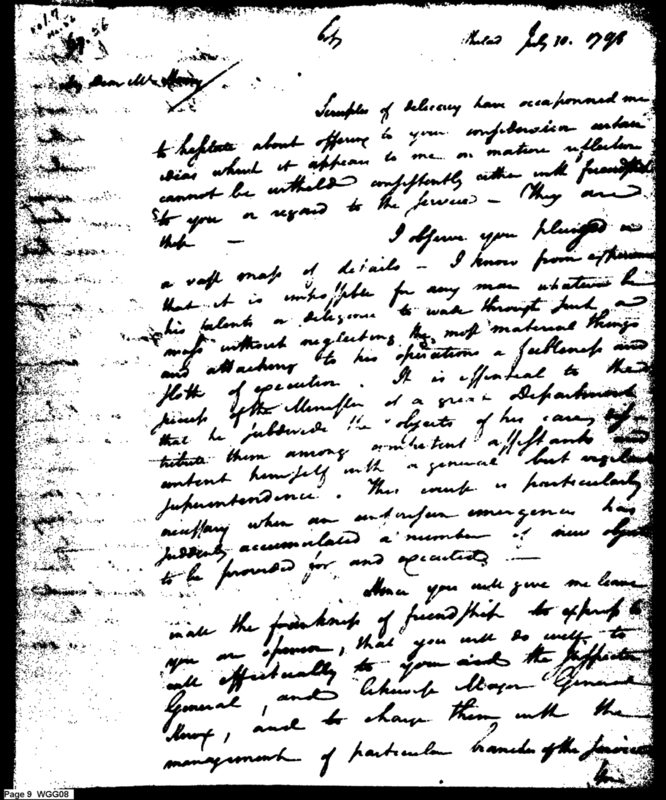 Philad July 30. 1798
My Dear Mr
Scruples of delicacy have occasionned me
to hesitate about offering to your consideration certain
ideas which it appears to me on mature reflection
cannot be witheld consistently either with friendship
to you or regard to the service — They are
these —
I observe you plunged in
a vast mass of details — I know from experience
that it is impossible for any man whatever be
his talents or diligence to wade through such a
mass without neglecting the most material things
and attaching to his operations a feebleness and
sloth of execution. It is essential to the
success of the Minister of a great Department
that he subdivide the objects of his care, dis-
tribute them among competent assistants and
content himself with a general but vigilant
superintendence. This course is particularly
necessary when an unforeseen emergence has
suddenly accumulated a number of new objects
to be provided for and executed —
Hence you will give me leave
with the frankness of friendship to express to
you an opinion, that you will do well to
call effectually to your aid the Inspector
General, and likewise Major General
Knox, and to charge them with the
management of particular branches of the service
Page 9 WGG08